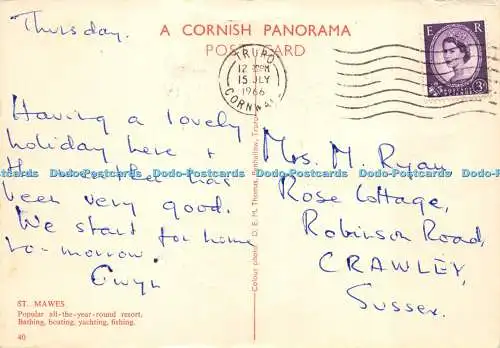 Thursday.
A CORNISH PANORAMA
POST CARD
TRURO
12 PM
15 JLY
1966
CORNWALL
E R
Having a lovely
holiday here &
has
been very good.
We start for home
to-morrow.
Gwyn
Mrs. M. Ryan,
Rose Cottage,
Robinson Road,
CRAWLEY,
Sussex.
Colour photo D. E. M. Thomas, Truro
ST. MAWES
Popular all-the-year-round resort.
Bathing, boating, yachting, fishing.
40
Dodo-Postcards Dodo-Postcards Dodo-Postcards Dodo-Postcards Dodo-Postcards Dodo-Postcards